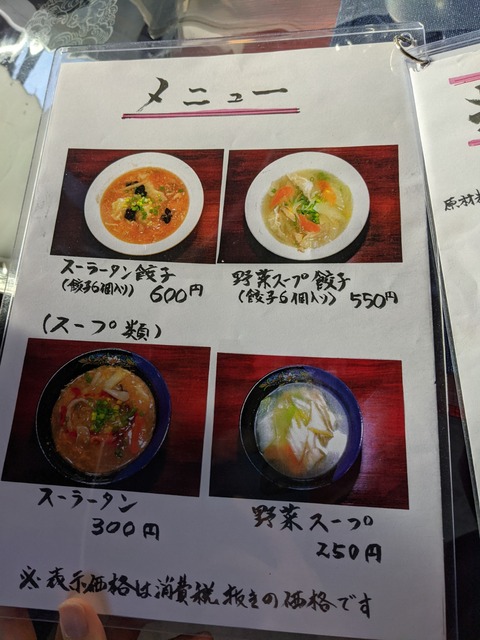 メニュー
スーラータン餃子
(餃子6個入り) 600円
野菜スープ餃子
(餃子6個入り) 550円
(スープ類)
スーラータン
300円
野菜スープ
250円
※表示価格は消費税抜きの価格です
原材料